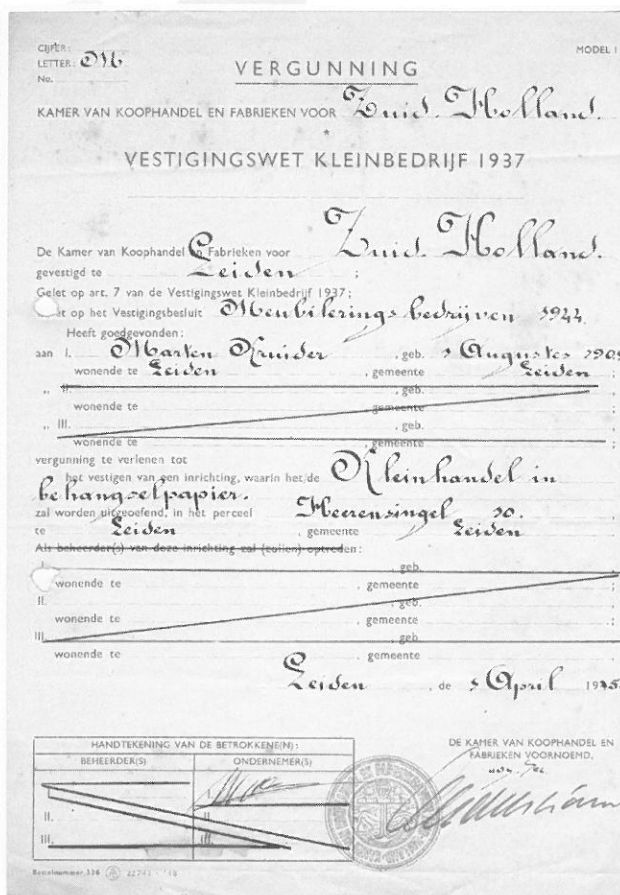 CIJFER:
LETTER: M
No.
MODEL I
VERGUNNING
KAMER VAN KOOPHANDEL EN FABRIEKEN VOOR Zuid-Holland.
*
VESTIGINGSWET KLEINBEDRIJF 1937
De Kamer van Koophandel en Fabrieken voor Zuid-Holland.
gevestigd te Leiden ;
Gelet op art. 7 van de Vestigingswet Kleinbedrijf 1937;
et op het Vestigingsbesluit Meubileringsbedrijven 1941.
Heeft goedgevonden:
aan I. Marten Kruider , geb. Augustus 190
wonende te Leiden , gemeente Leiden ;
„ II. , geb.
wonende te , gemeente ;
„ III. , geb.
wonende te , gemeente ;
vergunning te verlenen tot
het vestigen van een inrichting, waarin het/de Kleinhandel in
behangselpapier.
zal worden uitgeoefend, in het perceel Heerensingel
te Leiden , gemeente Leiden
Als beheerder(s) van deze inrichting zal (zullen) optreden:
I. , geb.
wonende te , gemeente ;
II. , geb.
wonende te , gemeente ;
III. , geb.
wonende te , gemeente
Leiden , de April 1945
HANDTEKENING VAN DE BETROKKENE(N):
BEHEERDER(S) ONDERNEMER(S)
I.
II. II.
III. III.
DE KAMER VAN KOOPHANDEL EN
FABRIEKEN VOORNOEMD.
Bestelnummer 336